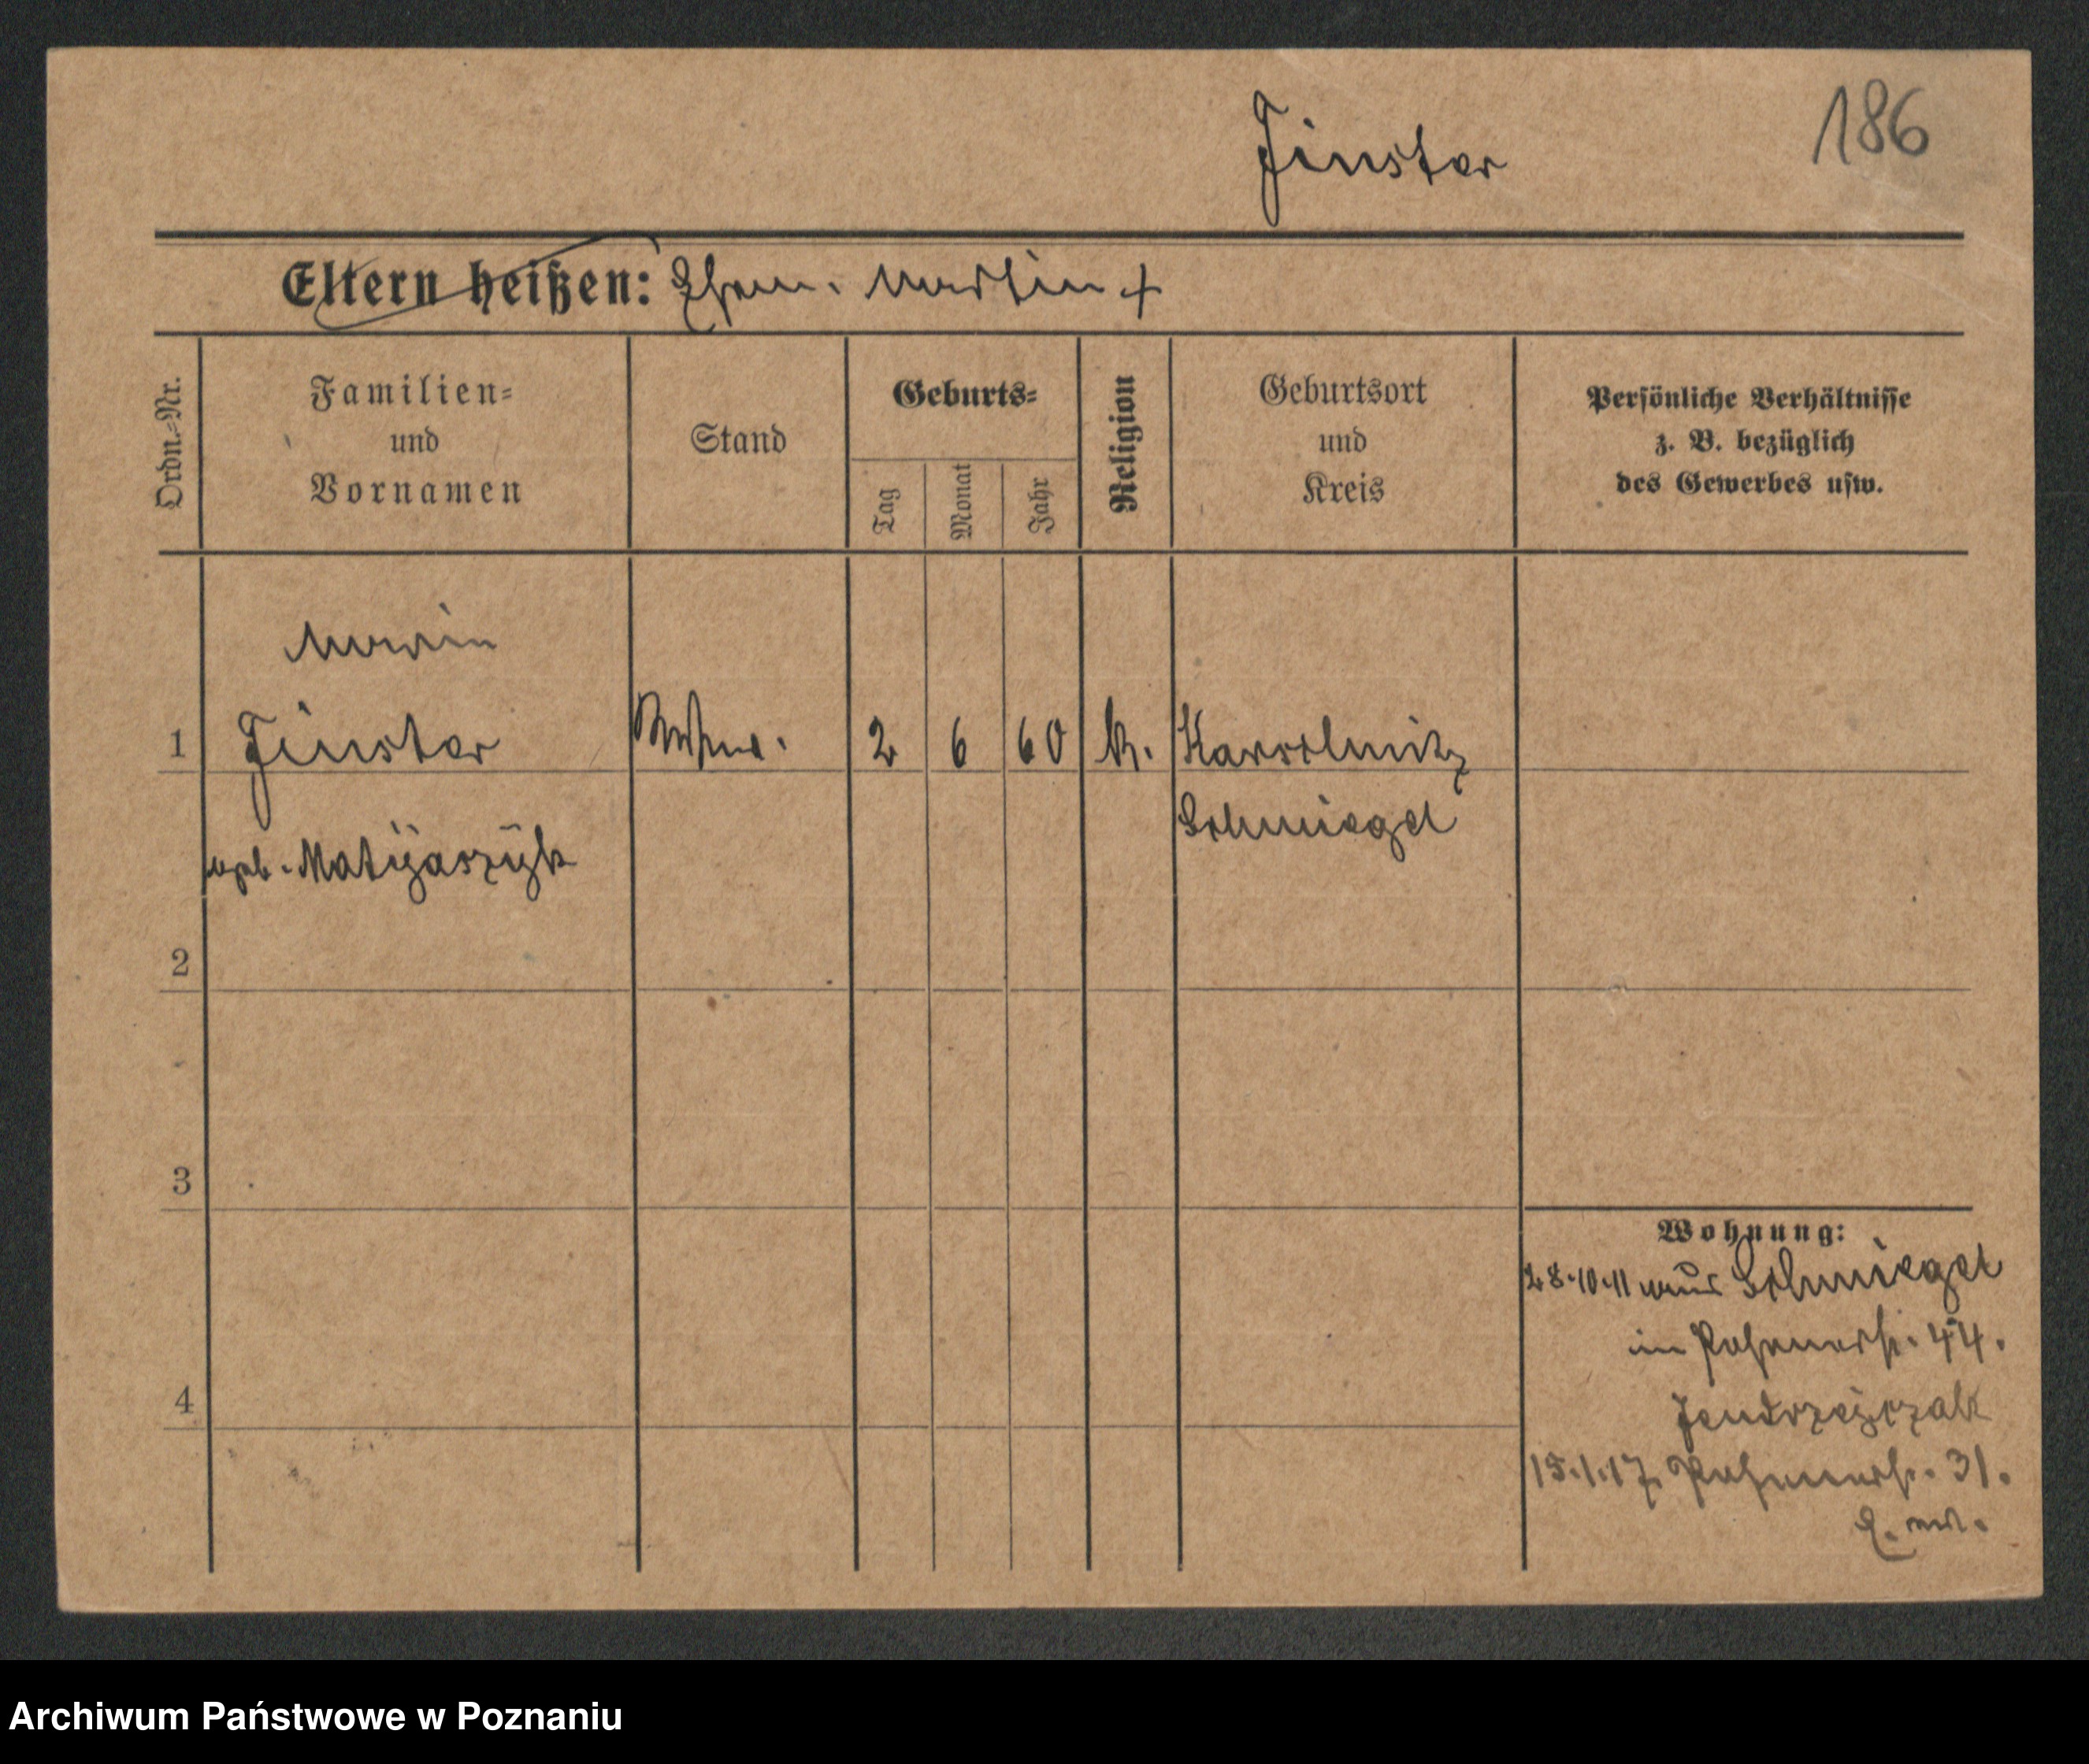 Finster
186
Eltern heißen: Ehem. Martin +
Ordn.-Nr.
Familien-
und
Vornamen
Stand
Geburts-
Tag
Monat
Jahr
Religion
Geburtsort
und
Kreis
Persönliche Verhältnisse
z. B. bezüglich
des Gewerbes usw.
Maria
1 Finster Wtwe. 2 6 60 k.
Schmiegel
geb. Matÿaszÿk
2
3
4
Wohnung:
28.10.11 aus Schmiegel
in Posenerstr. 44.
Jendrzejczak
15.1.17. Posenerstr. 31.
Archiwum Państwowe w Poznaniu